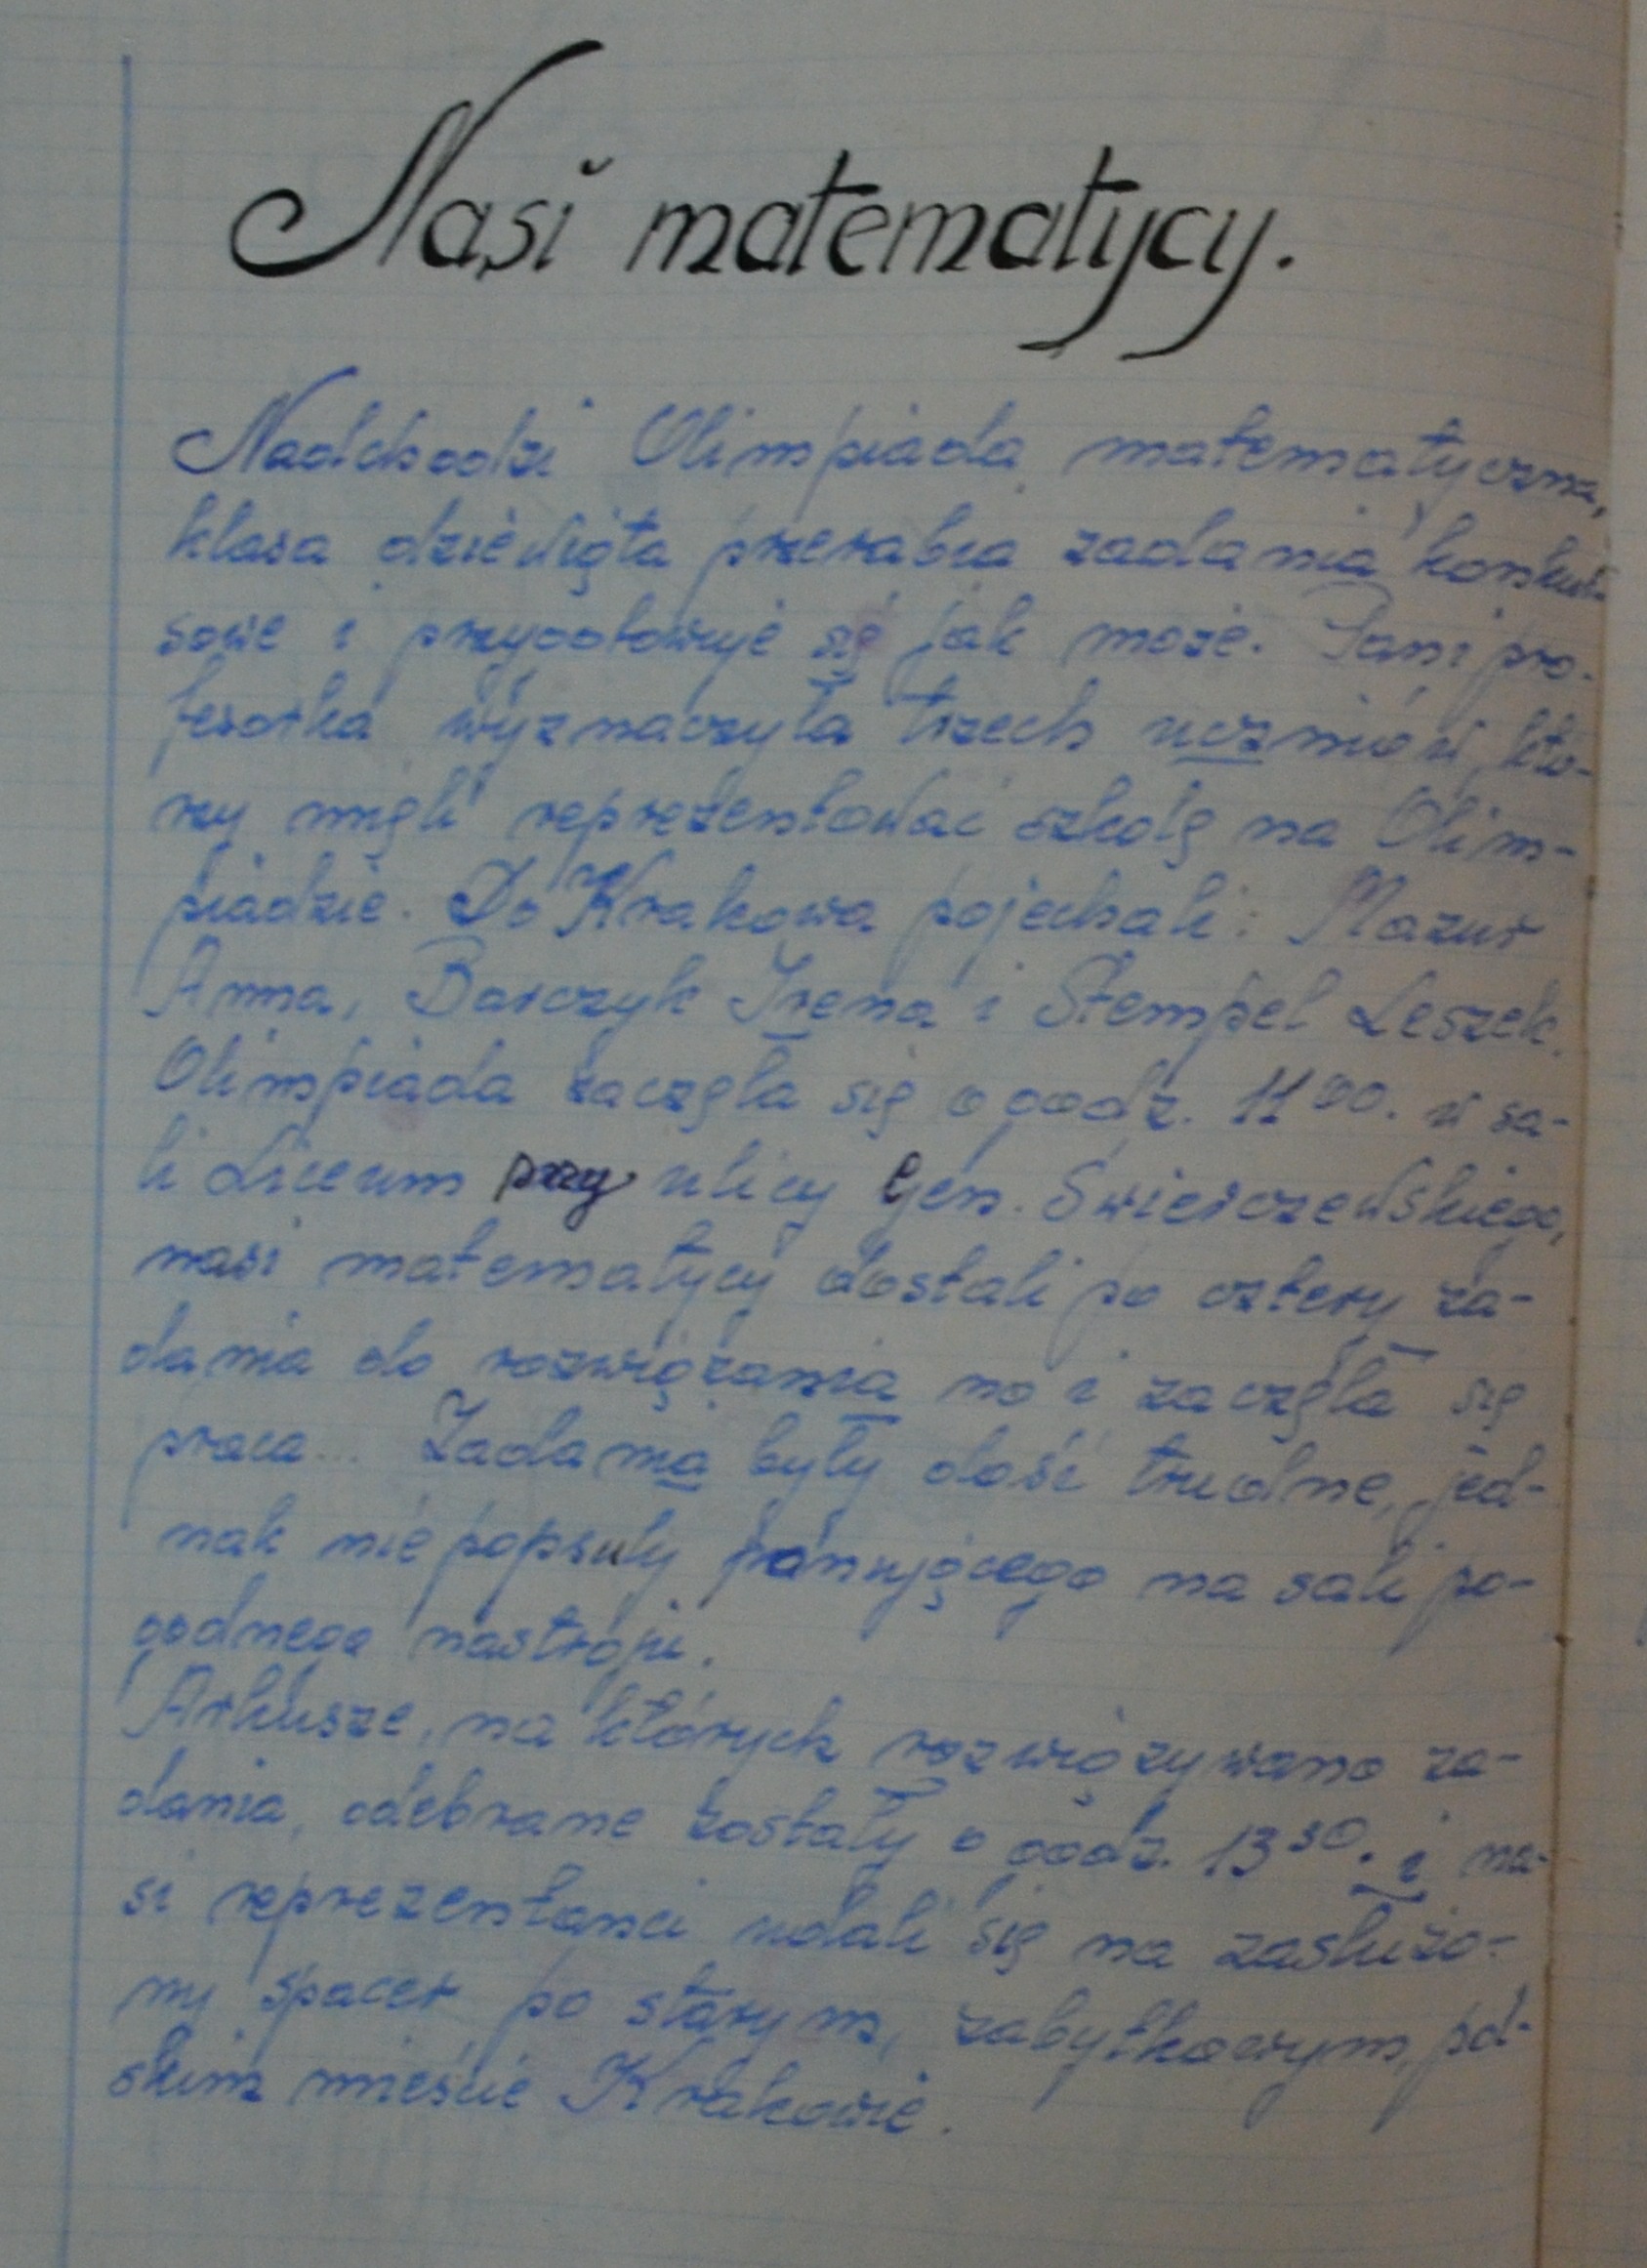 Nasi matematycy.
Nadchodzi Olimpiada matematyczna,
klasa dziewiąta przerabia zadania konkur-
sowe i przygotowuje się jak może. Pani pro-
fesorka wyznaczyła trzech uczniów, któ-
rzy mieli reprezentować szkołę na Olim-
piadzie. Do Krakowa pojechali: Mazur
Anna, Barczyk Irena i Stempel Leszek.
Olimpiada zaczęła się o godz. 11 00. w sa-
li Liceum przy ulicy Gen. Świerczewskiego,
nasi matematycy dostali po cztery za-
dania do rozwiązania no i zaczęła się
praca... Zadania były dość trudne, jed-
nak nie popsuły panującego na sali po-
godnego nastroju.
Arkusze, na których rozwiązywano za-
dania, odebrane zostały o godz. 13 30. i na-
si reprezentanci udali się na zasłużo-
ny spacer po starym, zabytkowym, pol-
skim mieście Krakowie.